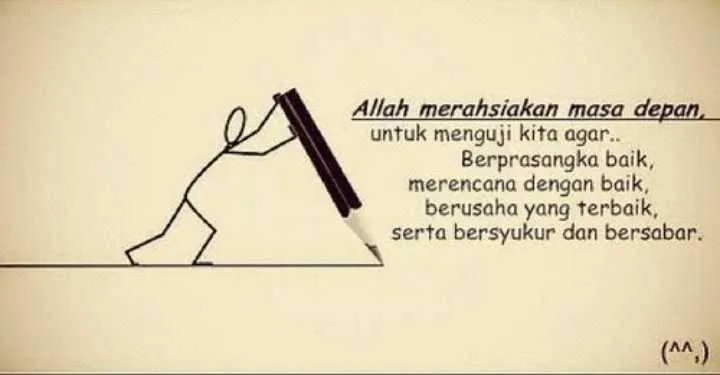 Allah merahsiakan masa depan,
untuk menguji kita agar..
Berprasangka baik,
merencana dengan baik,
berusaha yang terbaik,
serta bersyukur dan bersabar.
(^^,)